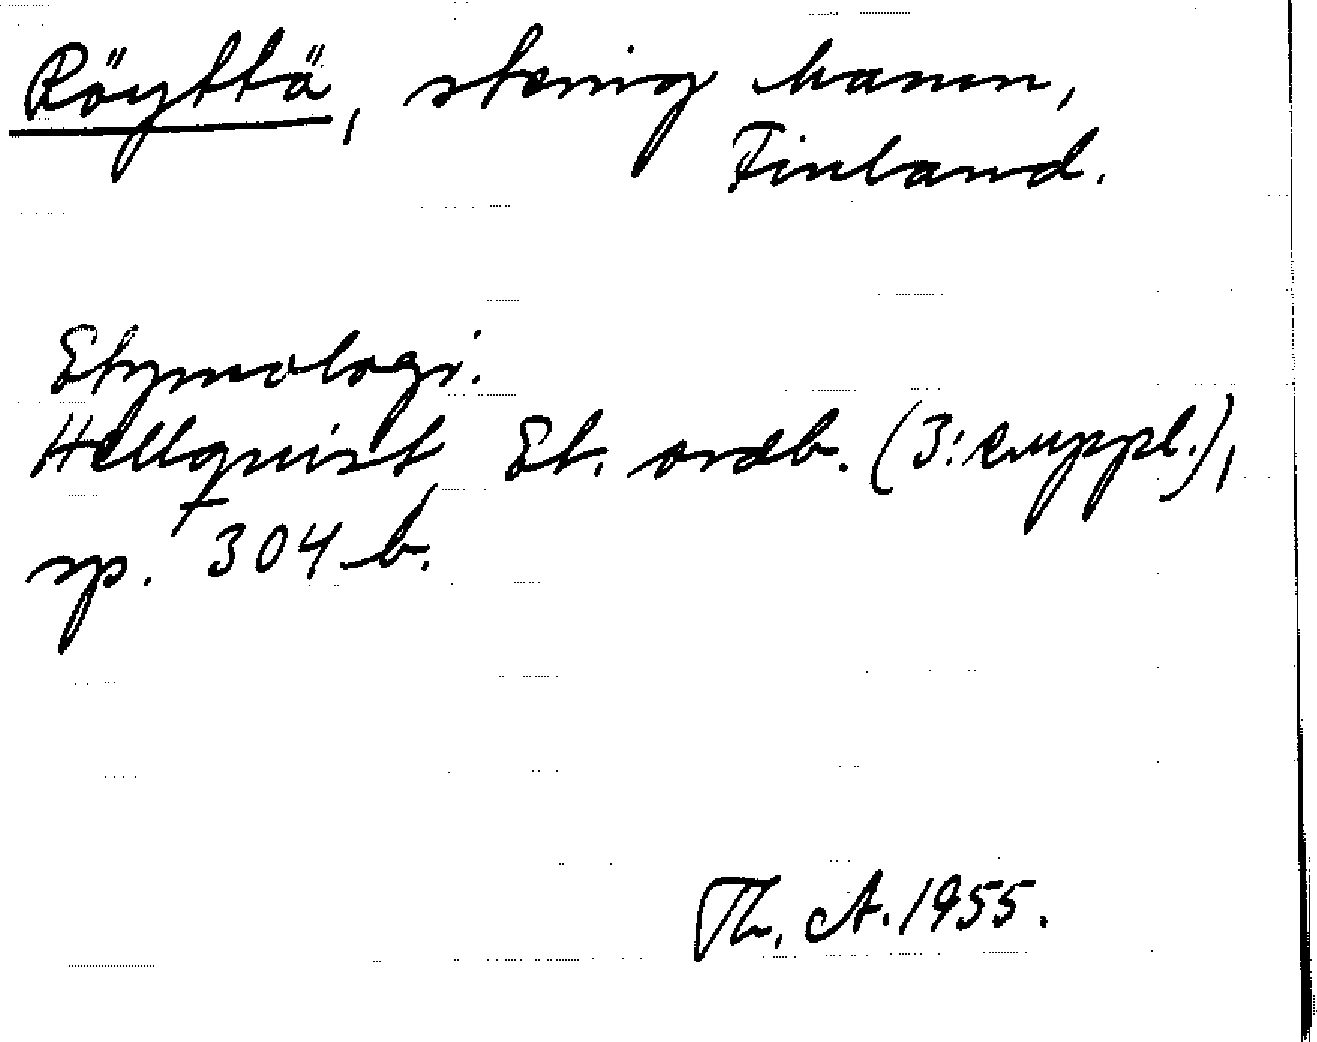 Röyttä, stenig hamn,
Finland.
Etymologi.
Hellquist Et. ordb. (3: suppl.),
sp. 304 b.
Th. A. 1955.